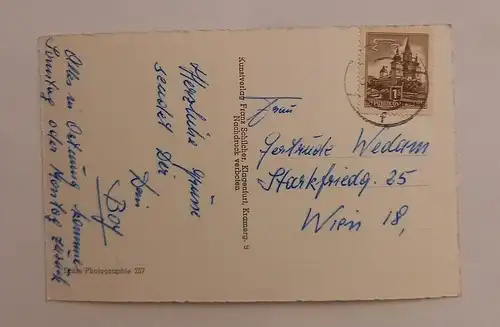 Herzliche Grüsse
sendet Dir
Dein
Boy
Alles in Ordnung komme
Sonntag oder Montag zurück
Echte Photographie 257
Kunstverlag Franz Schilcher, Klagenfurt, Kramerg. 8
Nachdruck verboten
Frau
Gertrude Wedam
Starkfriedg. 25
Wien 18,